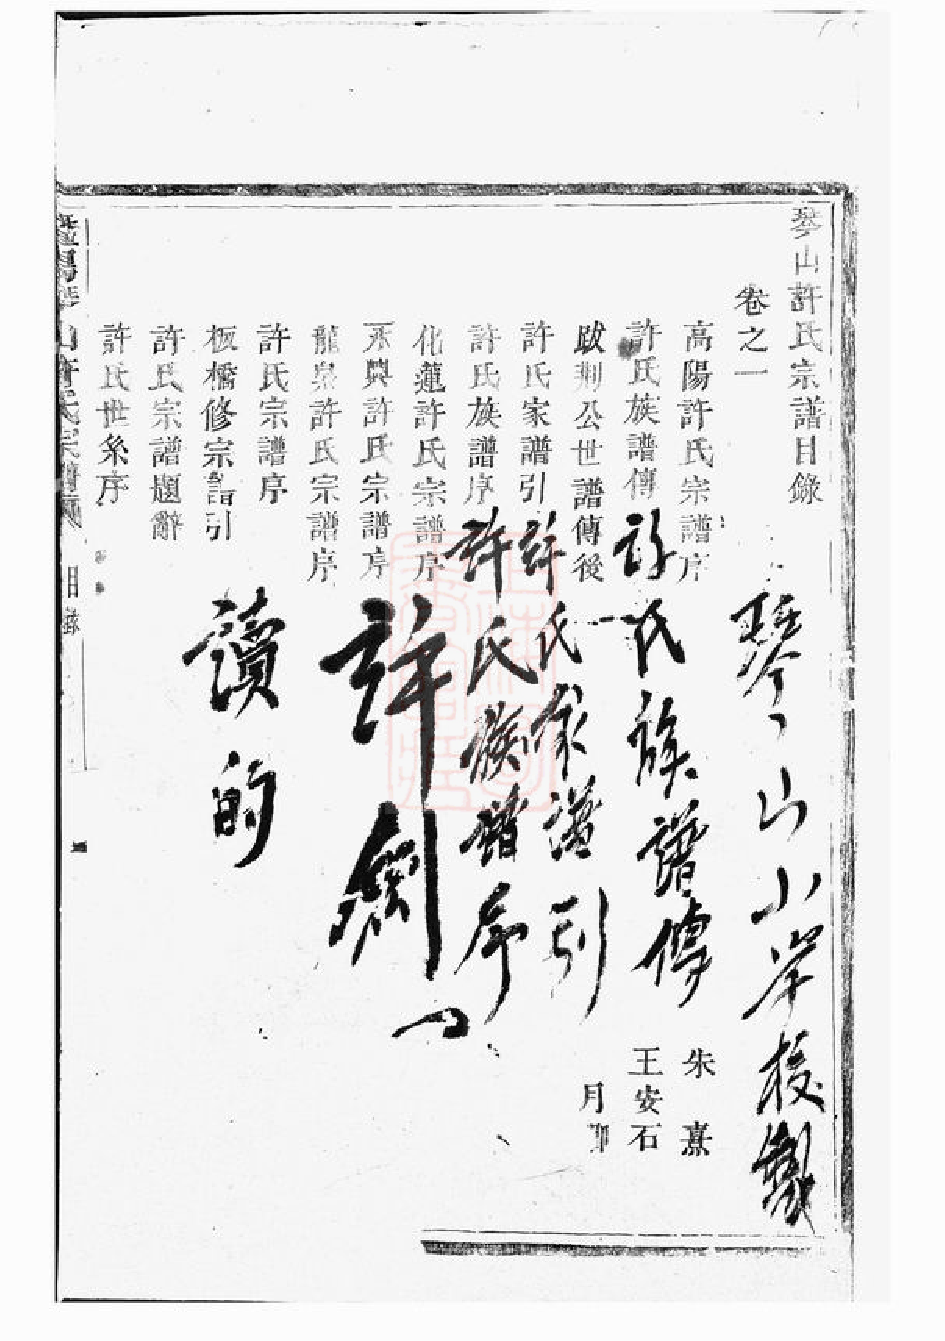 琴山許氏宗譜目錄
卷之一
高陽許氏宗譜序
朱熹
許氏族譜傳
王安石
跋荆公世譜傳後
許氏家譜引
許氏族譜序
化蓮許氏宗譜序
永興許氏宗譜序
龍泉許氏宗譜序
許氏宗譜序
板橋修宗譜引
許氏宗譜題辭
許氏世系序
山許氏宗譜
目錄
琴山山小岸校
許氏族譜傳
許氏家譜引
許氏族譜序
許劍
讀的